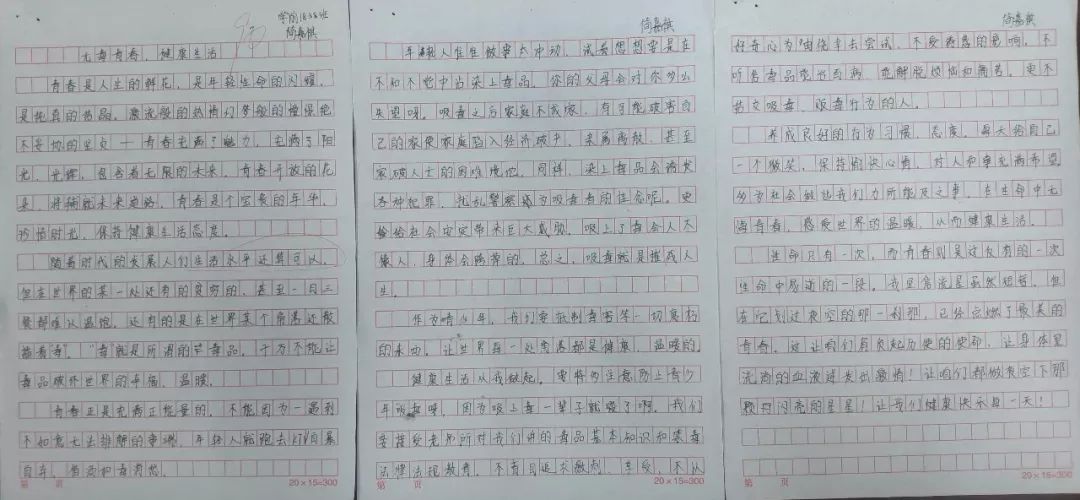 学前1838班
简嘉棋
无毒青春，健康生活
青春是人生的鲜花，是年轻生命的闪耀，
是纯真的结晶，激流般的热情，梦般的憧憬绝
不等地的坚贞——青春充满了魅力，充满了阳
光，光辉，包含着无限的未来，青春开放的花
朵，将铺就未来道路，青春是个宝贵的年华，
珍惜时光，保持健康生活态度。
随着时代的发展人们生活水平还算可以，
但在世界的某一处还有的贫穷的，甚至一日三
餐都难以温饱，还有的是在世界某个角落还散
播着毒，"毒"就是所谓的毒品，千万不能让
毒品破坏世界的幸福、温暖。
青春正是充满正能量的，不能因为一遇到
不如意无法排解的事情，年轻人就跑去
自弃，
第 页
20×15=300
简嘉棋
年轻人往往做事太冲动，试着想想要是在
不知不觉中沾染上毒品，你的父母会对你多么
失望呀，吸毒之后家庭不成家，有可能破害自
己的家使家庭陷入经济破中，亲属离散，甚至
家破人亡的困难境地。同样，染上毒品会诱发
各种犯罪，扰乱警察成为吸毒者的
会给社会安定带来巨大威胁，吸上了毒会人不
像人，身体会跨等的，总之，吸毒就是摧残人
生。
作为青少年，我们要抵制毒害等一切恶权
的东西，让世界每一处角落都是健康，温暖的。
健康生活从我做起，要特为注意防止青少
年吸毒哦，因为吸上毒一辈子就毁了啊，我们
要接受老师所对我们讲的毒品基本知识和禁毒
法律法规教育，不盲目追求激刺、享受，不从
第 页
20×15=300
简嘉棋
好奇心为由侥幸去尝试，不受毒瘾的影响，不
听信毒品能治百病，能解脱烦恼和痛苦，更不
结交吸毒、贩毒行为的人。
养成良好的行为习惯，态度，每天给自己
一个微笑，保持愉快心情，对人和事充满希望
多为社会做些我们力所能及之事，在生命中无
悔青春，感受世界的温暖，从而健康生活。
生命只有一次，而青春则是这仅有的一次
生命中易逝的一段，我且当流星虽然短暂，但
在它划过夜空的那一刹那，已经点燃了最美的
青春，这让咱们肩负起历史的使命，让身体里
流淌的血液迸发出激情！让咱们都做夜空下那
颗闪闪亮的星星！让我们健康快乐每一天！
第 页
20×15=300